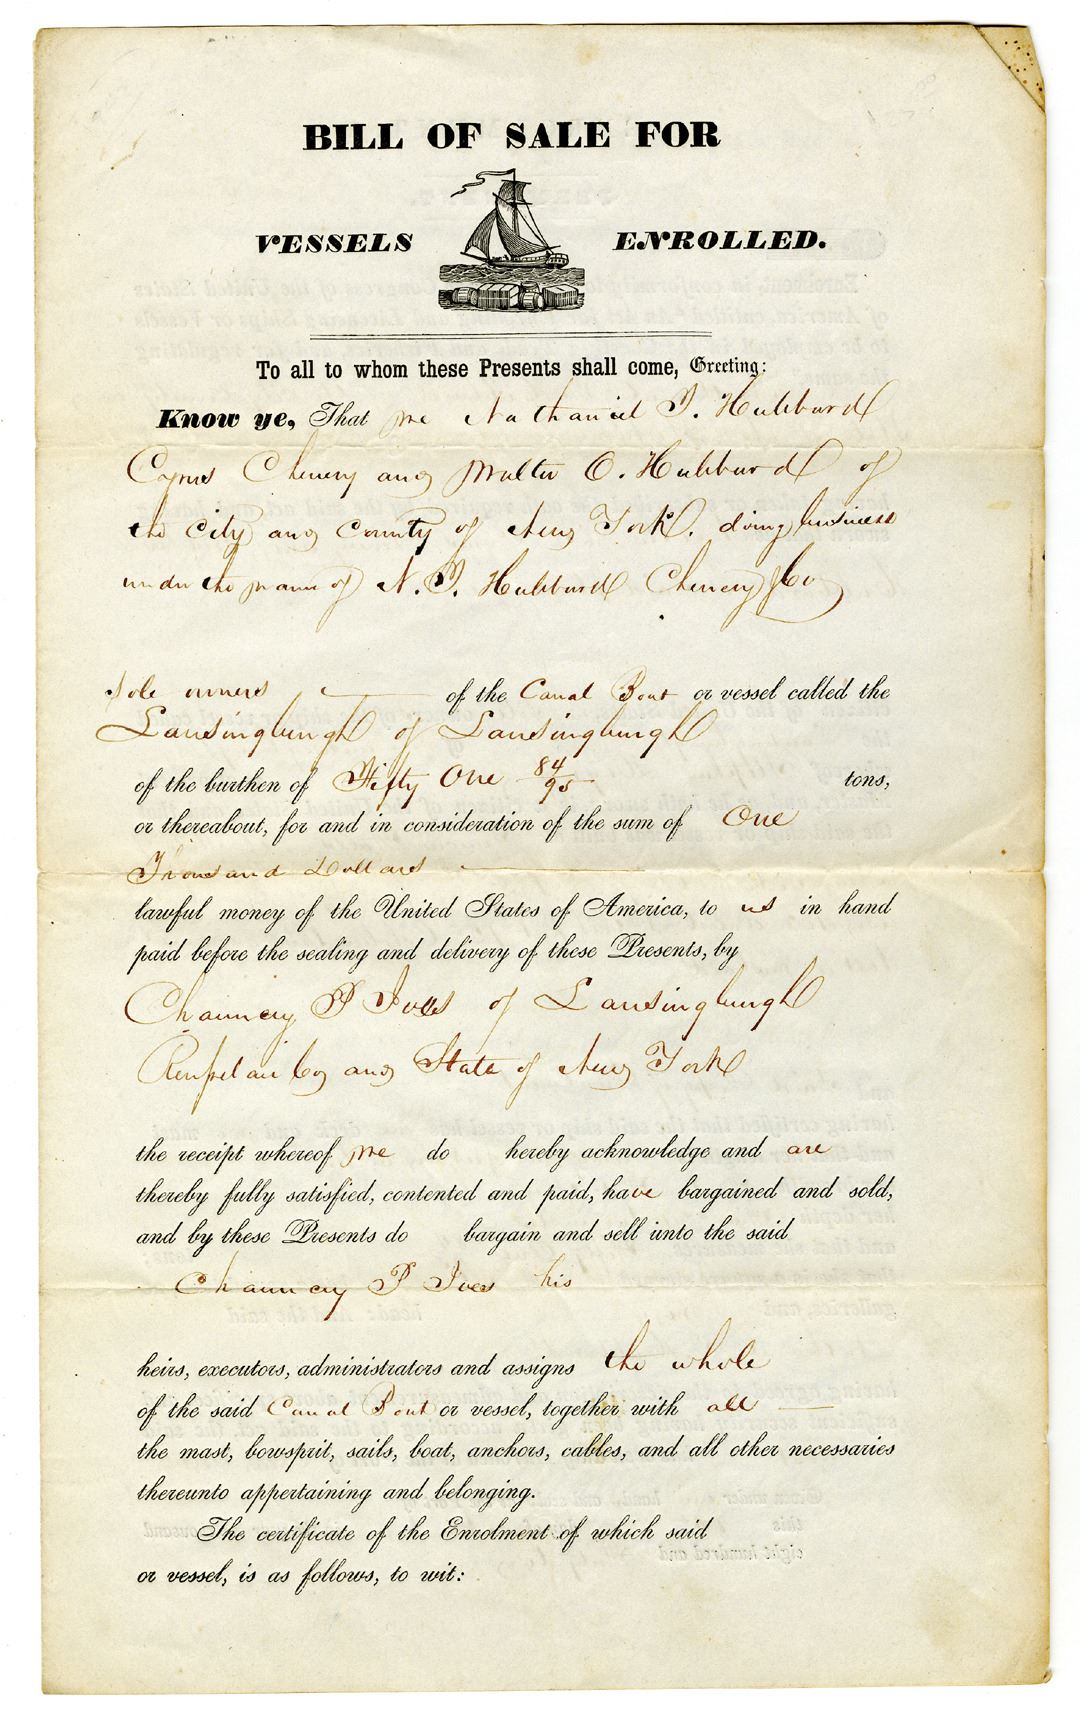 BILL OF SALE FOR
VESSELS ENROLLED.
To all to whom these Presents shall come, Greeting:
Know ye, That we Nathaniel T. Hubbard
Cyrus Chenery and Walter O. Hubbard of
the City and County of New York. doing business
under the name of N. T. Hubbard Chenery & Co
sole owners of the Canal Boat or vessel called the
Lansingburgh of Lansingburgh
of the burthen of Fifty One 84/95 tons,
or thereabout, for and in consideration of the sum of One
Thousand Dollars
lawful money of the United States of America, to us in hand
paid before the sealing and delivery of these Presents, by
Chauncey P Ives of Lansingburgh
Co and State of New York
the receipt whereof we do hereby acknowledge and are
thereby fully satisfied, contented and paid, have bargained and sold,
and by these Presents do bargain and sell unto the said
Chauncey P Ives his
heirs, executors, administrators and assigns the whole
of the said Canal Boat or vessel, together with all
the mast, bowsprit, sails, boat, anchors, cables, and all other necessaries
thereunto appertaining and belonging.
The certificate of the Enrolment of which said
or vessel, is as follows, to wit: